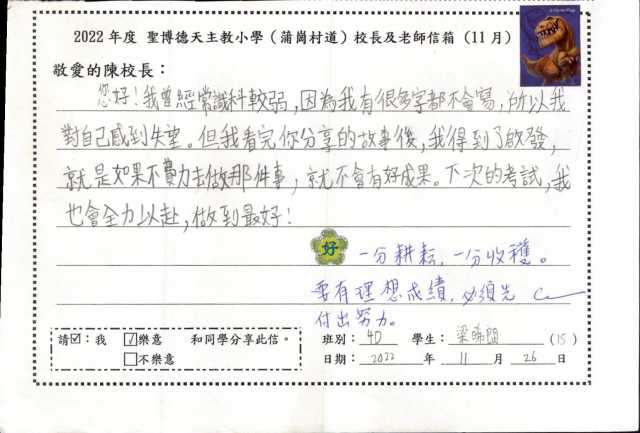 2022 年度 聖博德天主教小學(蒲崗村道)校長及老師信箱(11月)
敬愛的陳校長:
您好!我曾經常識科較弱,因為我有很多字都不會寫,所以我
對自己感到失望。但我看完你分享的故事後,我得到了啟發,
就是如果不費力去做那件事,就不會有好成果。下次的考試,我
也會全力以赴,做到最好!
好
一分耕耘,一分收穫。
要有理想成績,必須先
付出努力。
請☑:我 ☑樂意 和同學分享此信。
□不樂意
班別: 4D 學生: 梁晞 (15)
日期: 2022 年 11 月 26 日